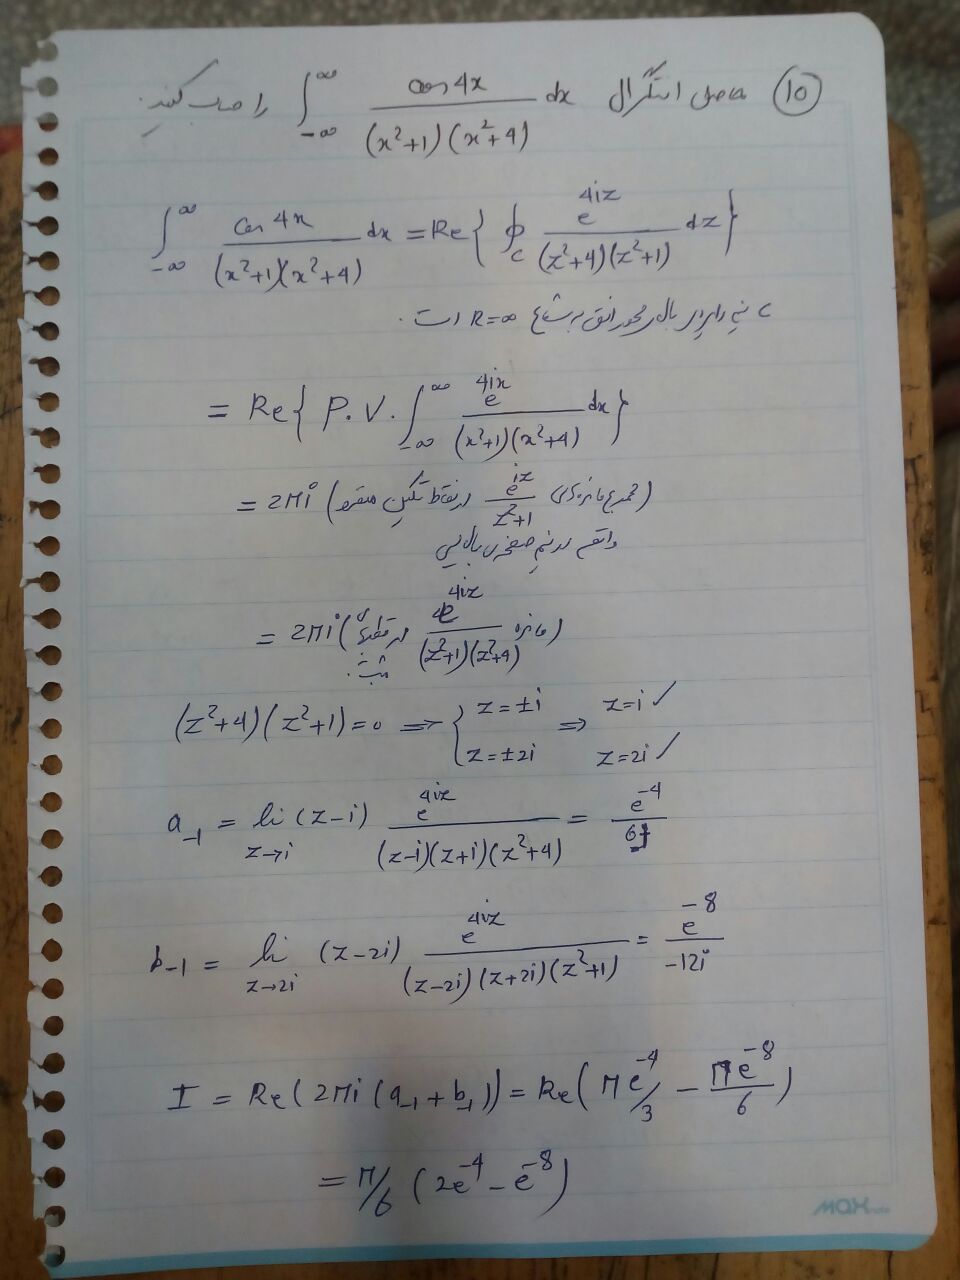 10 حاصل انتگرال ∫_{-∞}^{∞} cos4x / (x²+1)(x²+4) dx را حساب کنید.
∫_{-∞}^{∞} cos4x / (x²+1)(x²+4) dx = Re{ ∮_c e^{4iz} / (z²+4)(z²+1) dz }
c نیم دایره‌ای بالای محور افق به شعاع R=∞ است.
= Re{ P.V. ∫_{-∞}^{∞} e^{4ix} / (x²+1)(x²+4) dx }
= 2πi (مجموع مانده‌های e^{iz} / z²+1 در نقاط تکین منفرد
واقع در نیم صفحه‌ی بالایی
= 2πi (مانده e^{4iz} / (z²+1)(z²+4) در قطبهای مثبت)
(z²+4)(z²+1)=0 ⟹ { z=±i z=±2i ⟹ z=i ✓ z=2i ✓
a_{-1} = li_{z→i} (z-i) e^{4iz} / (z-i)(z+i)(z²+4) = e^{-4} / 6i
b_{-1} = li_{z→2i} (z-2i) e^{4iz} / (z-2i)(z+2i)(z²+1) = e^{-8} / -12i
I = Re(2πi(a_{-1}+b_{-1})) = Re(πe^{-4}/3 - πe^{-8}/6)
= π/6 (2e^{-4} - e^{-8})
MAX note